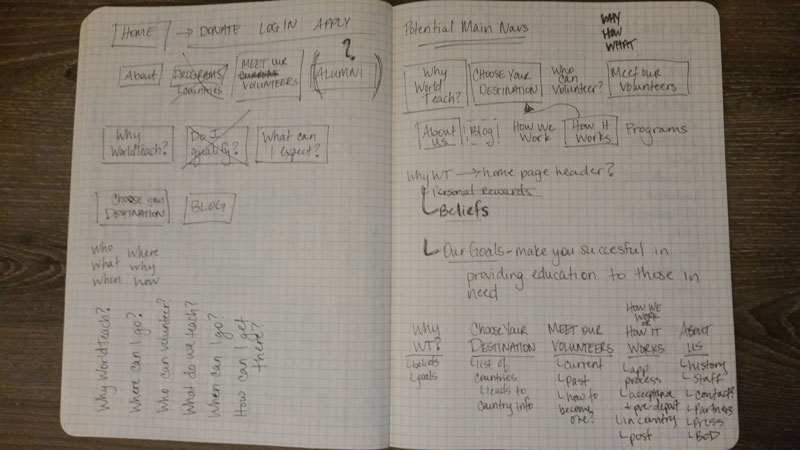 HOME → DONATE LOG IN APPLY
?
About PROGRAMS Countries MEET OUR CURRENT VOLUNTEERS (ALUMNI)
Why WorldTeach? Do I qualify? What can I expect?
Choose your DESTINATION BLOG
Who Where
What Why
When how
Why WorldTeach?
Where can I go?
Who can volunteer?
What do we teach?
When can I go?
How can I get there?
Potential Main Navs
WHY
HOW
WHAT
Why World Teach?
CHOOSE YOUR DESTINATION
Who can Volunteer?
Meet our Volunteers
About us
Blog
How We Work
How It Works
Programs
Why WT → home page header?
Personal Rewards
Beliefs
Our Goals - make you succesful in
providing education to those in
need
Why WT?
beliefs
goals
Choose Your DESTINATION
list of
countries
leads to
country info
MEET OUR VOLUNTEERS
current
past
how to
become
one?
HOW WE WORK or HOW IT WORKS
app
process
acceptance
+ pre-depart
in country
post
ABOUT US
history
Staff
Contact?
Partners
Press
BoD